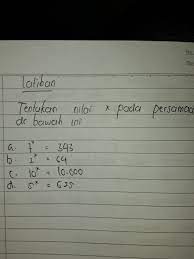 Latihan
Tentukan nilai x pada persamaa
di bawah ini
a. 7ˣ = 343
b. 2ˣ = 64
c. 10ˣ = 10.000
d. 5ˣ = 625